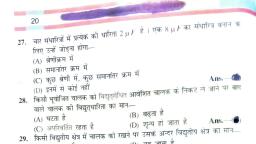 20
27. चार संधारित्रों में प्रत्येक की धारिता 2 μF है । एक 8 μF का संधारित्र बनाने के
लिए उन्हें जोड़ना होगा—
(A) श्रेणीक्रम में
(B) समानांतर क्रम में
(C) कुछ श्रेणी में, कुछ समानांतर क्रम में
(D) इनमें से कोई नहीं Ans.—
28. किसी भूयोजित चालक को विद्युतरोधित आवेशित चालक के निकट ले जाने पर बाद
वाले चालक की विद्युतधारिता का मान—
(A) घटता है (B) बढ़ता है
(C) अपरिवर्तित रहता है (D) शून्य हो जाता है Ans.—
29. किसी विद्युतीय क्षेत्र में चालक को रखने पर उसके अन्दर विद्युतीय क्षेत्र का मान—